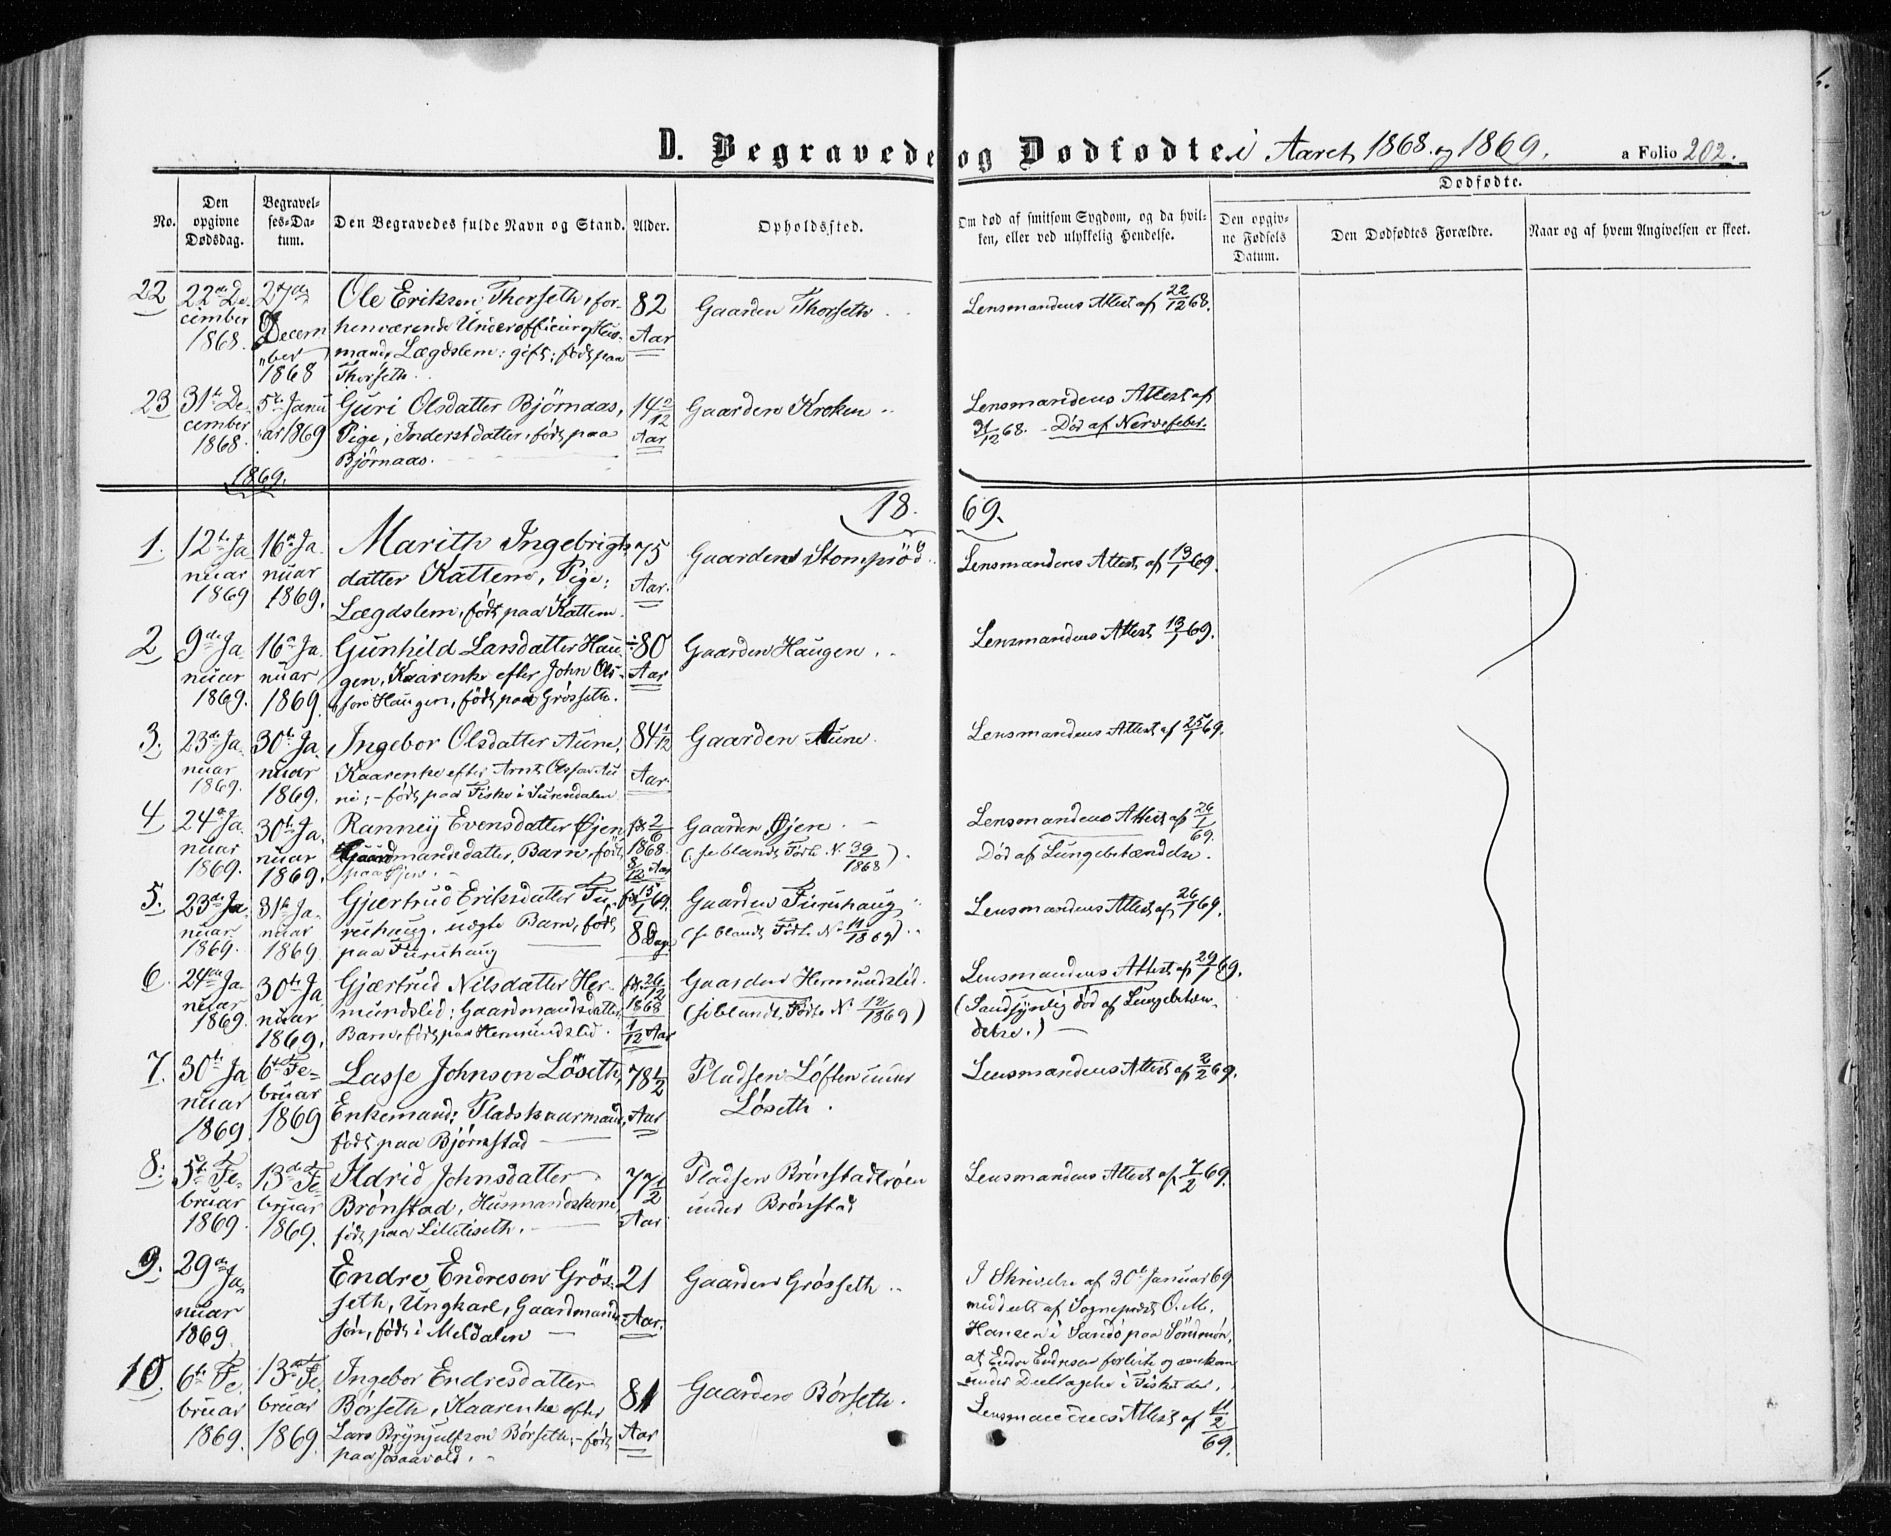 D. Begravede og Dødfødte i Aaret 1868 og 1869. a Folio 202.
Dødfødte.
No.
Den opgivne Dødsdag.
Begravel-ses-Da-tum.
Den Begravedes fulde Navn og Stand.
Alder.
Opholdssted.
Om død af smitsom Sygdom, og da hvil-ken, eller ved ulykkelig Hendelse.
Den opgiv-ne Fødsels Datum.
Den Dødfødtes Forældre.
Naar og af hvem Angivelsen er skeet.
22 22de De-
cember
1868.
27de
Decem
ber
1868
Ole Erikson Thorseth, for-
henværende Underofficier og Huus-
mand, Lægdslem: gift; født paa
Thorseth.
82
Aar
Gaarden Thorseth
Lensmandens Attest af 22/12 68.
23 31te De-
cember
1868.
5te Janu
ar 1869
Guri Olsdatter Bjørnaas,
Pige, Inderstdatter, født paa
Bjørnaas.
14
Aar
Gaarden Kroken
Lensmandens Attest af
31/12 68. - Død af Nervefeber.
1869.
18 69.
1. 12te Ja
nuar
1869
16de Ja
nuar
1869.
Marith Ingebrigts
datter Kattem, Pige;
Lægdslem, født paa Kattem.
75
Aar.
Gaarden Stomprød
Lensmandens Attest af 13/1 69.
2 9de Ja
nuar
1869.
16de Ja
nuar
1869.
Gunhild Larsdatter Hau
gen, Kaarenke efter John Ols-
son Haugen, født paa Grøsseth.
80
Aar
Gaarden Haugen
Lensmandens Attest 13/1 69.
3. 23de Ja
nuar
1869.
30te Ja
nuar
1869.
Ingebor Olsdatter Aune,
Kaarenke efter Arnt Olsson Au
ne; - født paa Fiske i Surendalen
84 1/12
Aar.
Gaarden Aune
Lensmandens Attest af 25/1 69.
4 24de Ja
nuar
1869.
30te Ja
nuar
1869.
Ranney Evensdatter Øjen
Gaardmandsdatter, Barn, født
paa Øjen.
2/6
1868.
8/12 Aar
Gaarden Øjen
(se blandt Fødte N. 39/1868).
Lensmandens Attest af 26/1
69.
Død af Lungebetændelse.
5. 23de Ja
nuar
1869.
31te Ja
nuar
1869.
Gjertrud Eriksdatter Fu-
ruhaug, uægte Barn, født
paa Furuhaug
15/1 69.
8 Dage
Gaarden Furuhaug
(se blandt Fødte N. 11/1869)
Lensmandens Attest af 26/1 69.
6 24de Ja
nuar
1869.
30te Ja
nuar
1869.
Gjærtrud Nilsdatter Her-
mundslid; Gaardmandsdatter
Barn, født paa Hermundslid.
26/12
1868
1/12 Aar
Gaarden Hermundslid.
(se blandt Fødte N. 12/1869)
Lensmandens Attest af 29/1 69.
(Sandsynlig død af Lungebetæn-
delse.)
7. 30te Ja
nuar
1869.
6te Fe-
bruar
1869
Lasse Johnson Løseth,
Enkemand; Pladskaarmand,
født paa Bjørnstad
78 1/2
Aar
Pladsen Løften under
Løseth.
Lensmandens Attest af 2/2 69.
8. 5te Fe-
bruar
1869.
13de Fe
bruar
1869.
Ildrid Johnsdatter
Brønstad, Husmandskone
født paa Lilleliseth.
77 1/2
Aar
Pladsen Brønstadtrøen
under Brønstad
Lensmandens Attest af 7/2 69.
9. 29de
Ja
nuar
1869.
Endre Endreson Grøs-
seth, Ungkarl, Gaardmands
søn, født i Meldalen
21
Aar.
Gaarden Grøsseth
I Skrivelse af 30te Januar 69
meddeelt af Sogneprest O. M.
Hansen i Sandø paa Søndmør,
at Endre Endreson forliste og omkom
under Deeltagelse i Fisket der.
10. 6te Fe
bruar
1869.
13de Fe
bruar
1869.
Ingebor Endresdatter
Børseth, Kaarenke efter
Lars Brynjulfson Børseth; - født
paa
81
Aar
Gaarden Børseth.
Lensmandens Attest af 11/2
69.